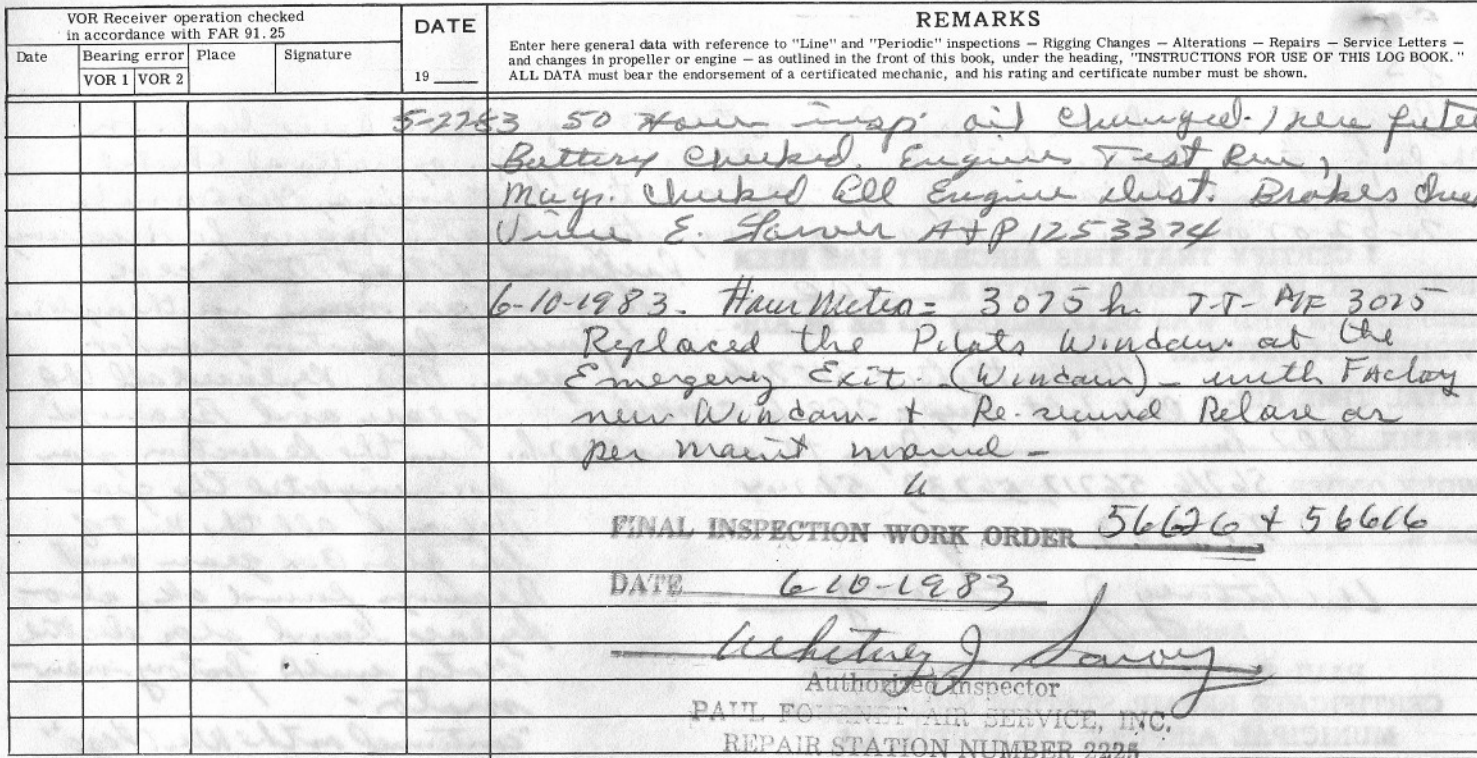 VOR Receiver operation checked
in accordance with FAR 91.25
Date Bearing error Place Signature
VOR 1 VOR 2
DATE
19
REMARKS
Enter here general data with reference to "Line" and "Periodic" inspections — Rigging Changes — Alterations — Repairs — Service Letters —
and changes in propeller or engine — as outlined in the front of this book, under the heading, "INSTRUCTIONS FOR USE OF THIS LOG BOOK."
ALL DATA must bear the endorsement of a certificated mechanic, and his rating and certificate number must be shown.
5-22-83 50 Hour insp. oil changed.
Battery Checked. Engine Test Run,
Mags. Checked All Engine Inst. Brakes
E. A+P 1253374
6-10-1983. Hour Meter = 3075 h. T-T- A/F 3075
Replaced the Pilots Window at the
Emergency Exit. (Window) - with Factory
new Window. + as
per maint manual -
FINAL INSPECTION WORK ORDER 56626 + 56616
DATE 6-10-1983
Whitney J Savoy
Authorized Inspector
PAUL FOURNET AIR SERVICE, INC.
REPAIR STATION NUMBER 2225